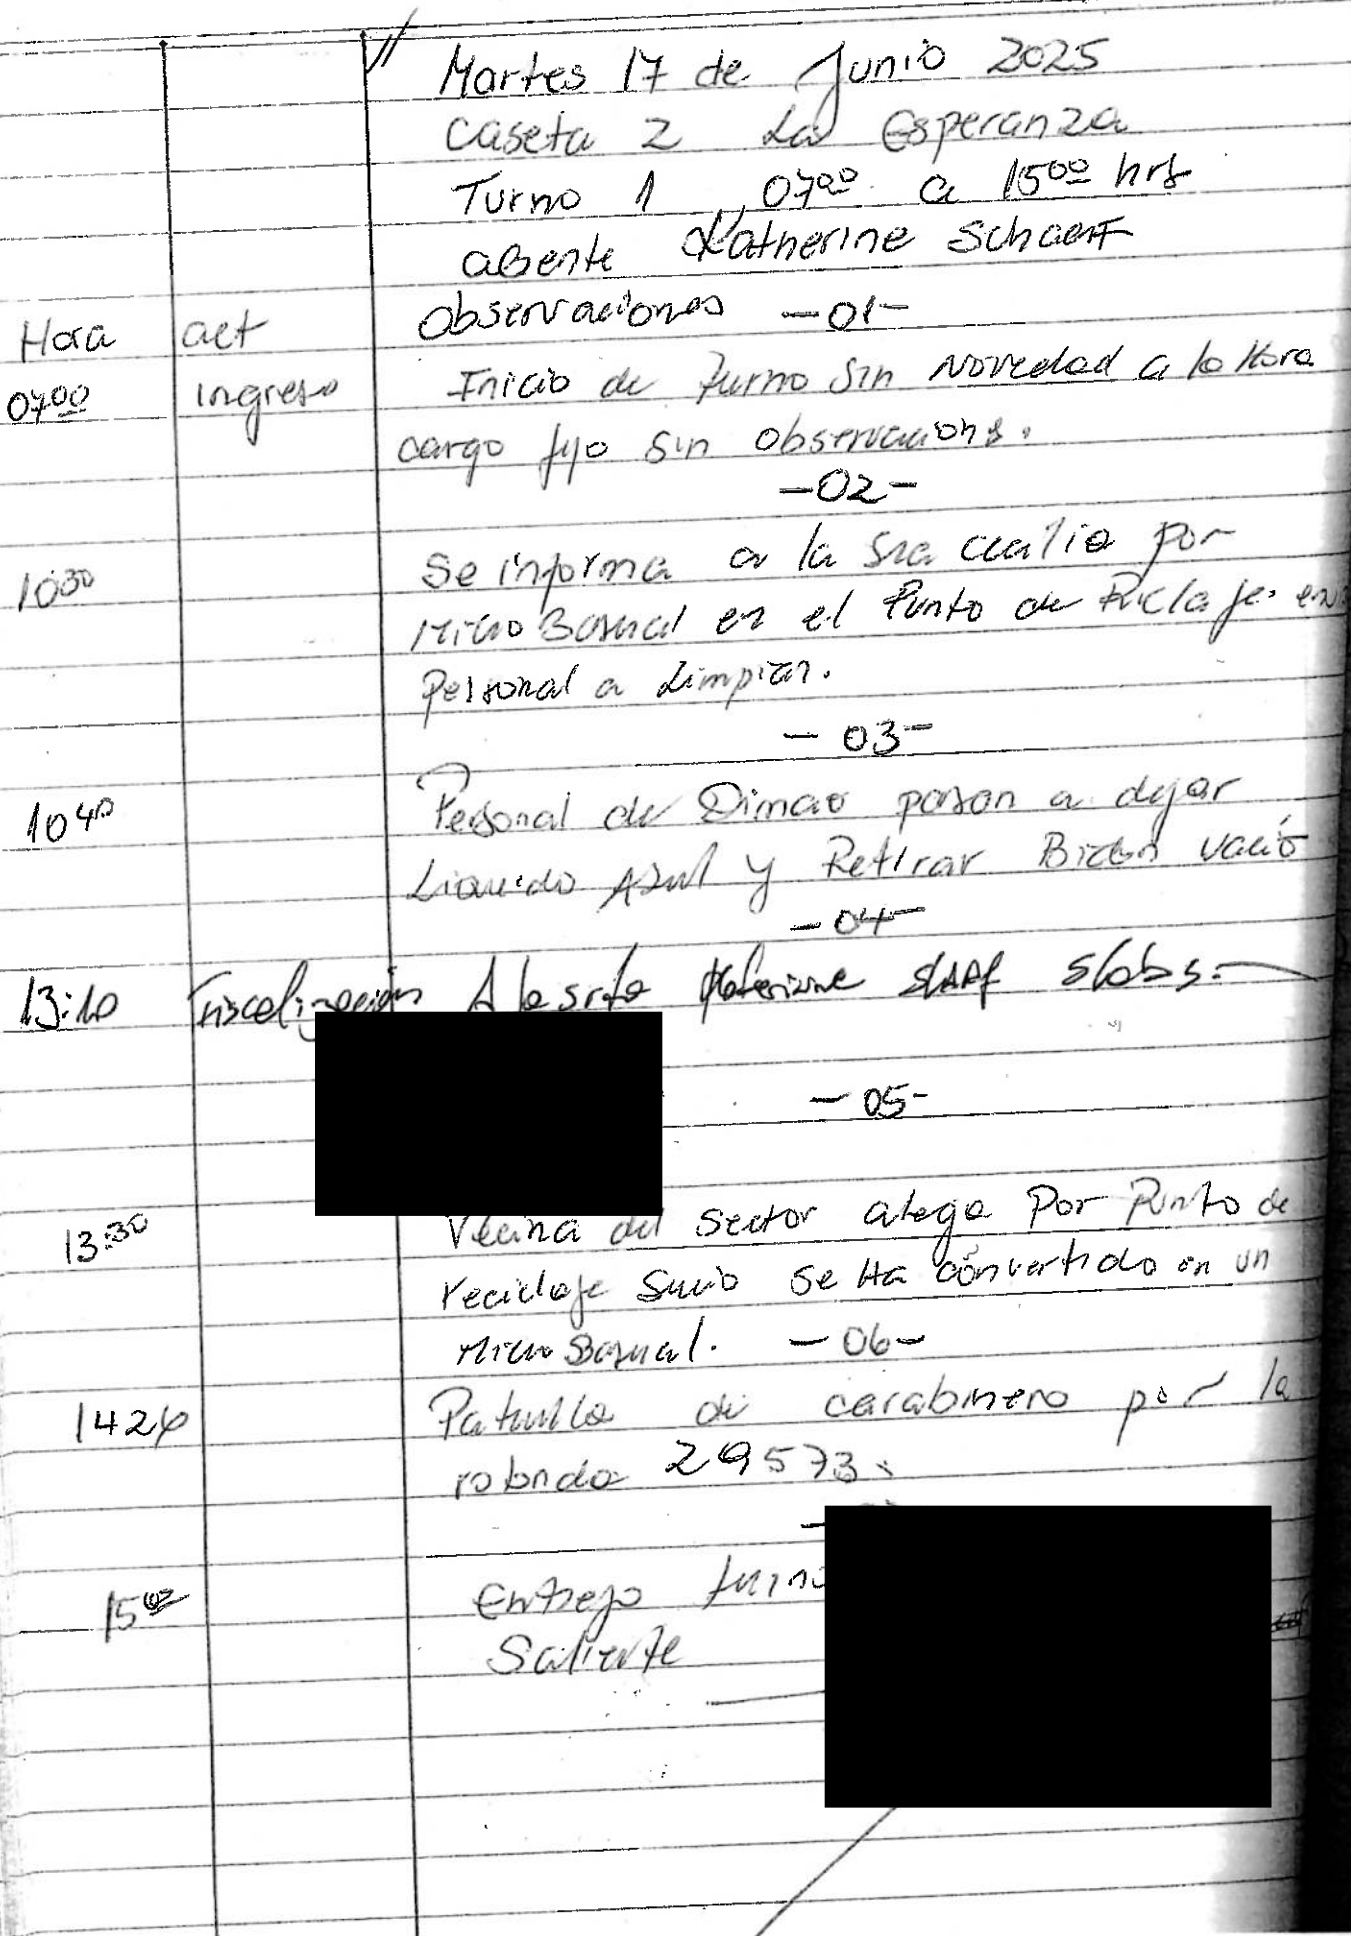 Martes 17 de Junio 2025
Caseta 2 La Esperanza
Turno 1 0700 a 1500 hrs
Agente Katherine Schaerf
Hora act Observaciones -01-
0700 ingreso Inicio de turno sin Novedad a la Hora
cargo fijo sin observaciones.
-02-
1030 Se informa a la Sra Cecilia por
Micro Basural en el Punto de
Personal a Limpiar.
-03-
1040 Personal de Dimao pasan a dejar
Liquido Azul y Retirar Bidon vacio
-04-
13:10 Fiscalización A la srta s/obs.
-05-
13:30 Vecina del Sector alega Por Punto de
reciclaje Sucio se Ha convertido en un
Micro Basural. -06-
Patrulla de carabinero por la
29573.
1500 Entrego turno
Saliente